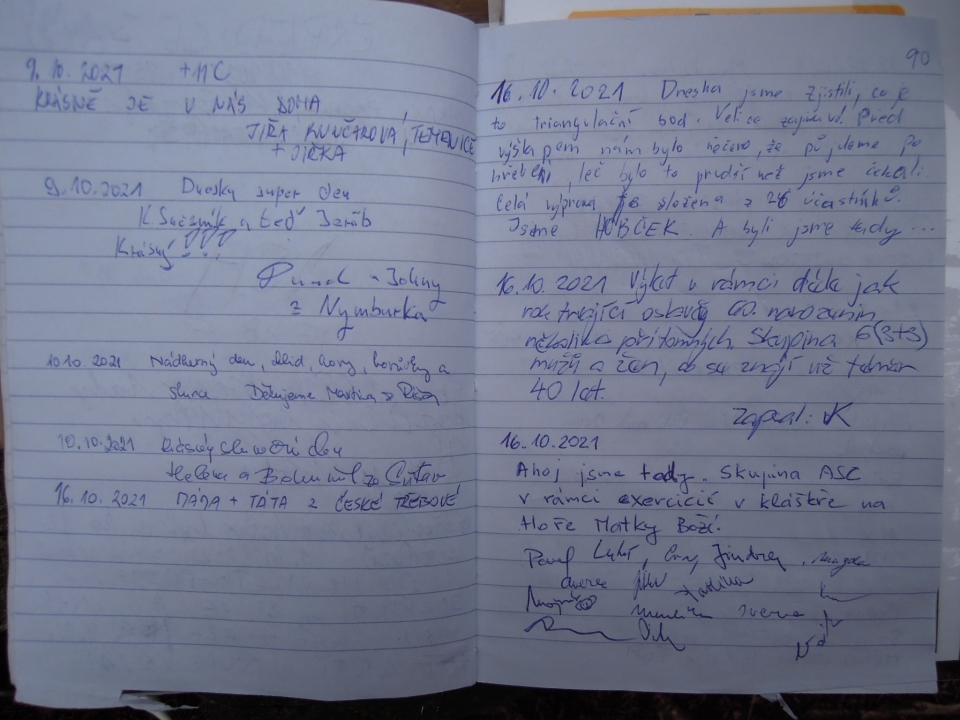 9.10.2021 +11°C
KRÁSNĚ JE U NÁS DOMA
JIŘA KUNČAROVÁ, TEMENICE
+ JIŘKA
9.10.2021 Dnesky super den
K.Sněžník a teď Jeřáb
Krásný!!!
z Nymburka
10.10.2021 Nádherný den, klid, hory, borůvky a
slunce Děkujeme Martina
10.10.2021 Krásný slunečný den
Helena a Bohumil ze Svitav
16.10.2021 MÁMA + TÁTA Z ČESKÉ TŘEBOVÉ
90
16.10.2021 Dneska jsme zjistili, co je
to triangulační bod. Velice zajímavé! Před
výšlapem nám bylo řečeno, že půjdeme po
hřebeni, leč bylo to prudší než jsme čekali.
Celá výprava je složena z 28 účastníků.
Jsme HŮBČEK. A byli jsme tady ...
16.10.2021 Výlet v rámci déle jak
rok trvající oslavy 60. narozenin
několika přítomných. Skupina 6(3+3)
mužů a žen, co se znají už téměř
40 let.
Zapsal: VK
16.10.2021
Ahoj jsme tady. Skupina ASC
v rámci exercicií v klášteře na
Hoře Matky Boží.
Pavel Jindra